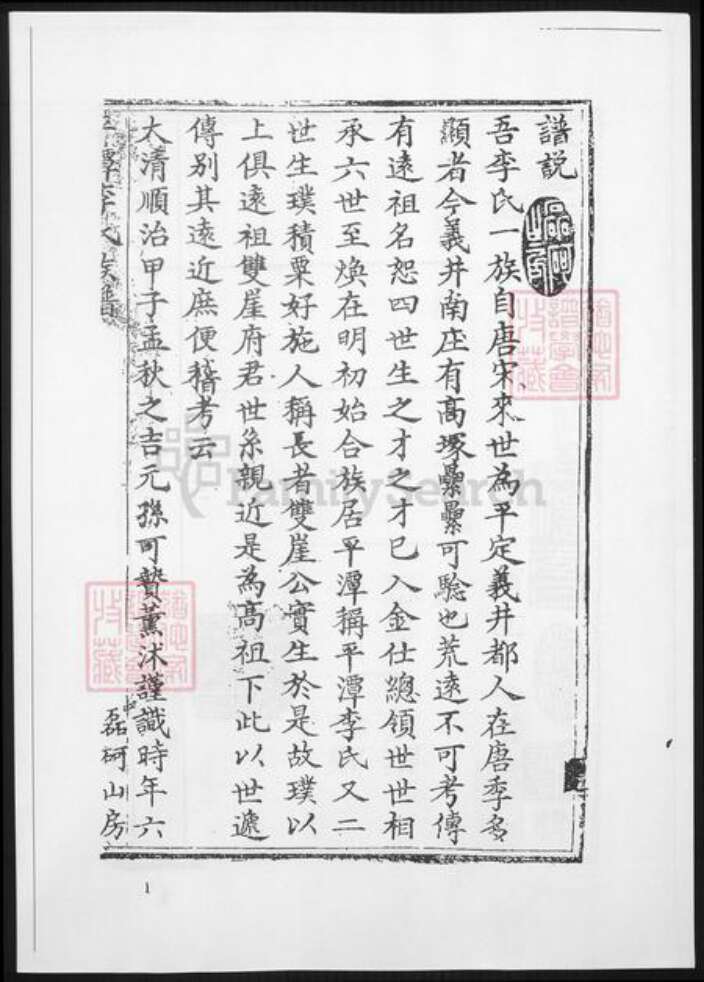 譜説
吾李氏一族自唐宋來世為平定義井都人在唐季多
顯者今義井南庄有高塚纍纍可騐也荒遠不可考傳
有遠祖名恕四世生之才之才已入金仕總領世世相
承六世至煥在明初始合族居平潭稱平潭李氏又二
世生璞積粟好施人稱長者雙崖公實生於是故璞以
上俱遠祖雙崖府君世系親近是為高祖下此以世遞
傳别其遠近庶便稽考云
大清順治甲子孟秋之吉元孫可贊薰沐謹識時年六
平潭李氏族譜
磊砢山房
FamilySearch
收藏
譜學會
收藏
1